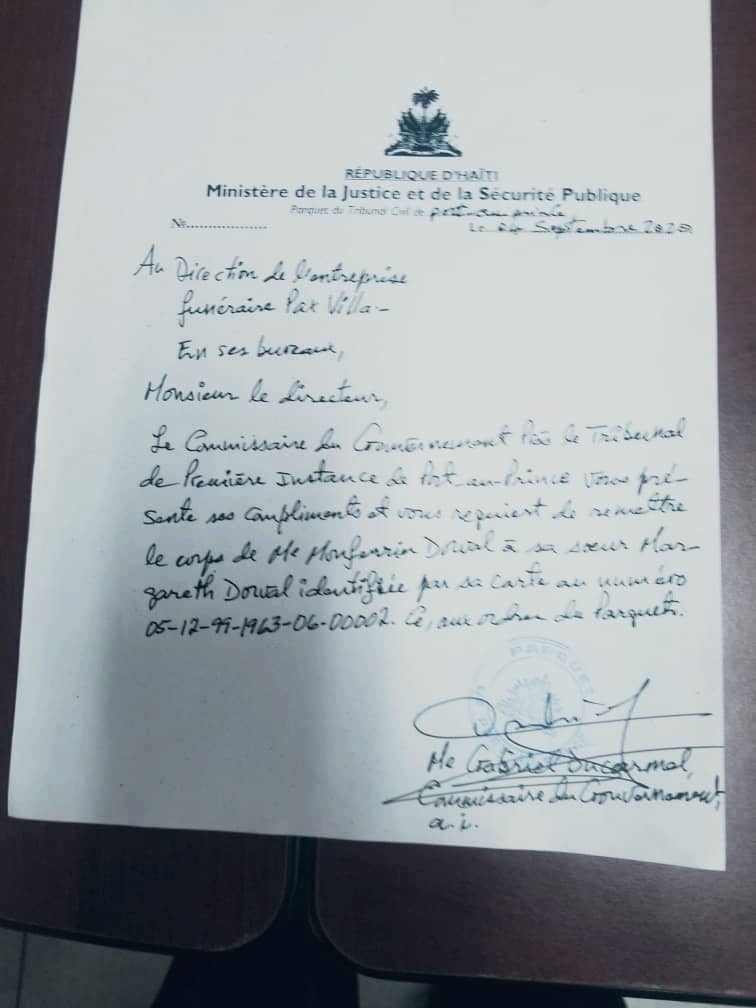 RÉPUBLIQUE D'HAÏTI
Ministère de la Justice et de la Sécurité Publique
Parquet du Tribunal Civil de port-au-prince
No..................
Le 04 Septembre 2020.
Au Direction de l'entreprise
funéraire Pax Villa.-
En ses bureaux,
Monsieur le directeur,
Le Commissaire du Gouvernement Près le Tribunal
de Première Instance de Port-au-Prince vous pré-
sente ses compliments et vous requiert de remettre
le corps de Me Monferrin Dorval à sa soeur Mar-
gareth Dorval identifiée par sa carte au numéro
05-12-99-1963-06-00002. Ce, aux ordres du Parquet.
PARQUET
Me Gabriel Ducarmel,
Commissaire du Gouvernement,
a.i.